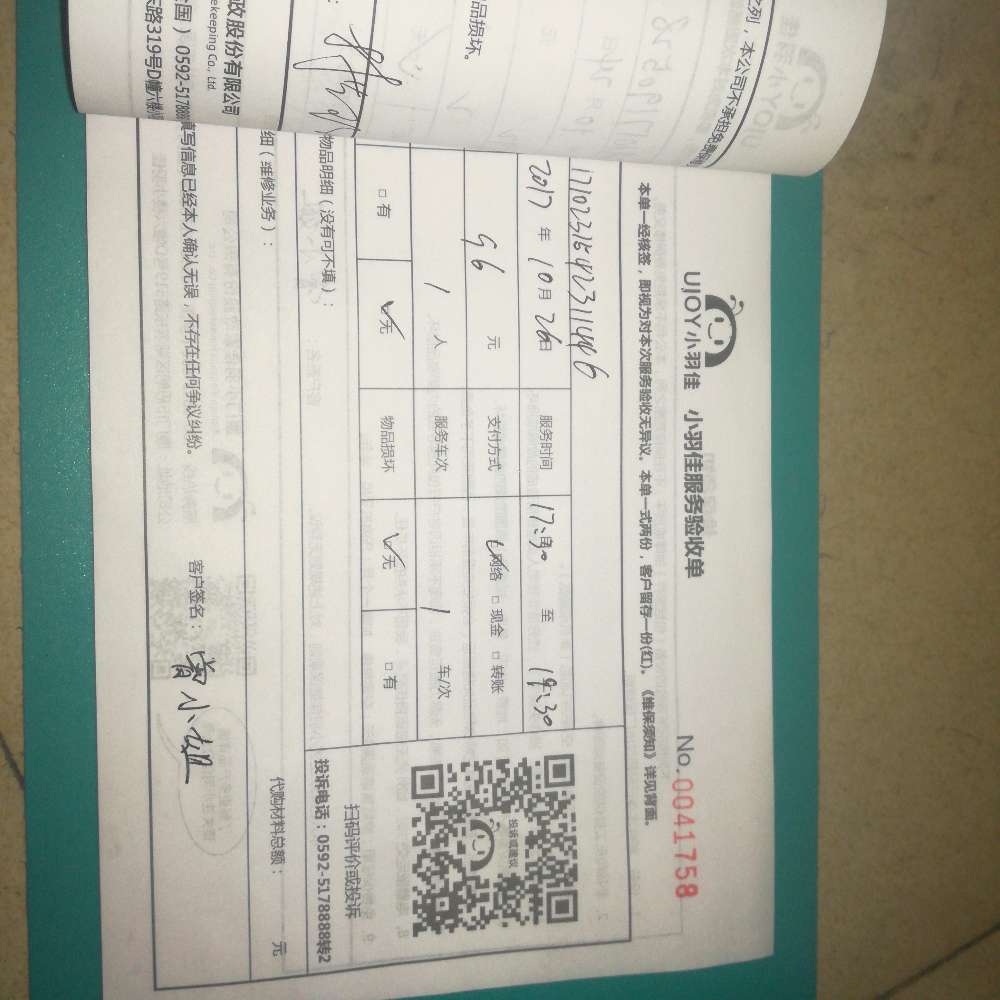 UJOY小羽佳 小羽佳服务验收单
No.0041758
本单一经核签，即视为对本次服务验收无异议。本单一式两份，客户留存一份(红)。《维保须知》详见背面。
2017 年 10月 26日 服务时间 17:30 至 19:30
96 元 支付方式 ☑网络 □现金 □转账
1 人 服务车次 1 车/次
□有 ☑无 物品损坏 ☑无 □有
扫码评价或投诉
投诉电话：0592-5178888转2
投诉或建议
物品明细（没有可不填）：
细（维修业务）：
代购材料总额： 元
填写信息已经本人确认无误，不存在任何争议纠纷。 客户签名：曾小姐
之列，本公司不承担免费
品损坏。
政股份有限公司
ekeeping Co., Ltd.
国） 0592-517888
路319号D幢六楼